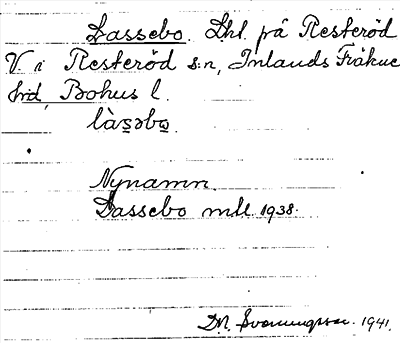 Lassebo. Lht. på Resteröd
V i Resteröd s:n, Inlands Fräkne
hrd, Bohus l.
làs̲əbω̲.
Nynamn.
Lassebo mtl. 1938.
1941.